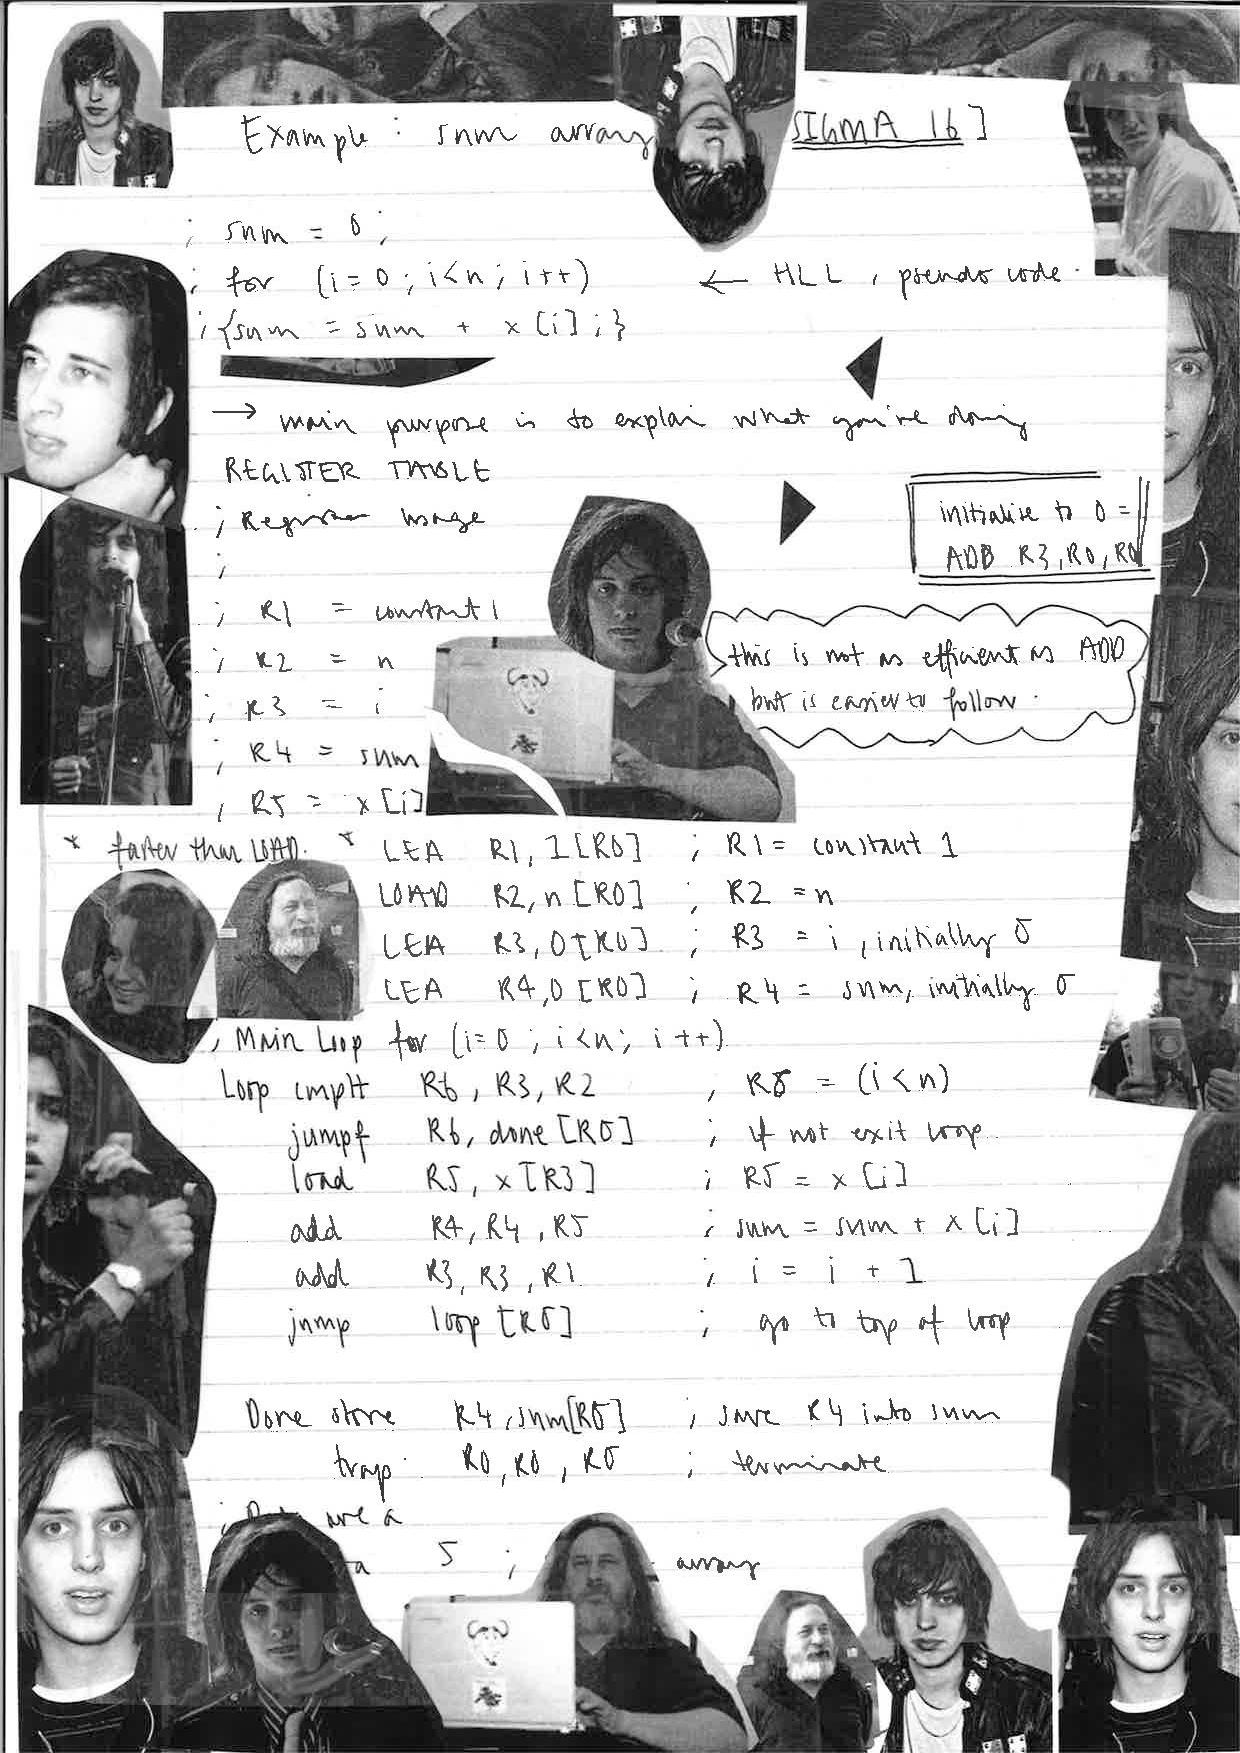 Example : sum array SIGMA 16 ]
; sum = 0 ;
; for (i=0 ; i<n ; i++) ← HLL , pseudo code.
; {sum = sum + x [i] ; }
→ main purpose is to explain what you're doing
REGISTER TABLE
; Register usage
;
; R1 = constant 1
; R2 = n
; R3 = i
; R4 = sum
; R5 = x [i]
initialise to 0 =
ADD R3, R0, R0
this is not as efficient as ADD
but is easier to follow.
* faster than LOAD. * LEA R1, 1 [R0] ; R1 = constant 1
LOAD R2, n [R0] ; R2 = n
LEA R3, 0 [R0] ; R3 = i , initially 0
LEA R4, 0 [R0] ; R4 = sum, initially 0
; Main Loop for (i=0 ; i<n; i++)
Loop cmplt R6, R3, R2 ; = (i<n)
jumpf R6, done [R0] ; if not exit loop
load R5, x [R3] ; R5 = x [i]
add R4, R4, R5 ; sum = sum + x [i]
add R3, R3, R1 ; i = i + 1
jump loop [R0] ; go to top of loop
Done store R4, sum[R0] ; save R4 into sum
trap R0, R0, R0 ; terminate
; area
a 5 ; array